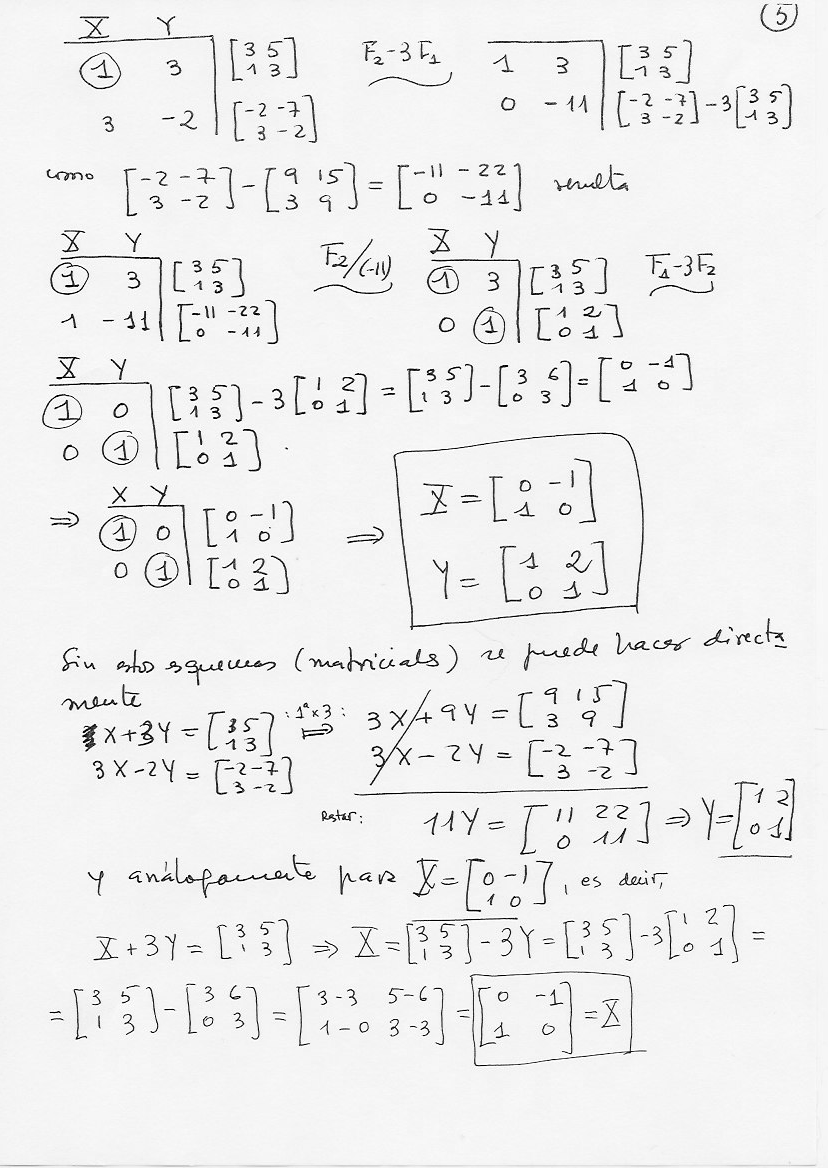 5
X Y
1 3 [3 5; 1 3] F2-3F1 1 3 [3 5; 1 3]
3 -2 [-2 -7; 3 -2] 0 -11 [-2 -7; 3 -2] - 3[3 5; 1 3]
como [-2 -7; 3 -2] - [9 15; 3 9] = [-11 -22; 0 -11] resulta
X Y F2/(-11) X Y F1-3F2
1 3 [3 5; 1 3] 1 3 [3 5; 1 3]
1 -11 [-11 -22; 0 -11] 0 1 [1 2; 0 1]
X Y
1 0 [3 5; 1 3] - 3[1 2; 0 1] = [3 5; 1 3] - [3 6; 0 3] = [0 -1; 1 0]
0 1 [1 2; 0 1] .
X Y
⇒ 1 0 [0 -1; 1 0] ⇒ X = [0 -1; 1 0]
0 1 [1 2; 0 1] Y = [1 2; 0 1]
Sin estos esquemas (matricials) se puede hacer directa
mente
X+3Y = [3 5; 1 3] :1ª×3: ⟹ 3X+9Y = [9 15; 3 9]
3X-2Y = [-2 -7; 3 -2] 3X-2Y = [-2 -7; 3 -2]
Restar: 11Y = [11 22; 0 11] ⇒ Y = [1 2; 0 1]
y análogamente para X = [0 -1; 1 0], es decir,
X + 3Y = [3 5; 1 3] ⇒ X = [3 5; 1 3] - 3Y = [3 5; 1 3] - 3[1 2; 0 1] =
= [3 5; 1 3] - [3 6; 0 3] = [3-3 5-6; 1-0 3-3] = [0 -1; 1 0] = X